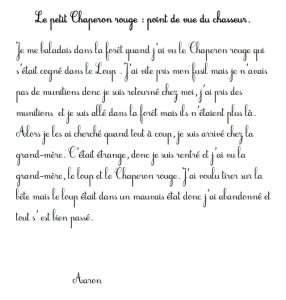 Le petit Chaperon rouge : point de vue du chasseur.
Je me baladais dans la forêt quand j'ai vu le Chaperon rouge qui
s'était cogné dans le Loup . J'ai vite pris mon fusil mais je n'avais
pas de munitions donc je suis retourné chez moi, j'ai pris des
munitions et je suis allé dans la forêt mais ils n'étaient plus là.
Alors je les ai cherché quand tout à coup, je suis arrivé chez la
grand-mère. C'était étrange, donc je suis rentré et j'ai vu la
grand-mère, le loup et le Chaperon rouge. J'ai voulu tirer sur la
bête mais le loup était dans un mauvais état donc j'ai abandonné et
tout s'est bien passé.
Aaron